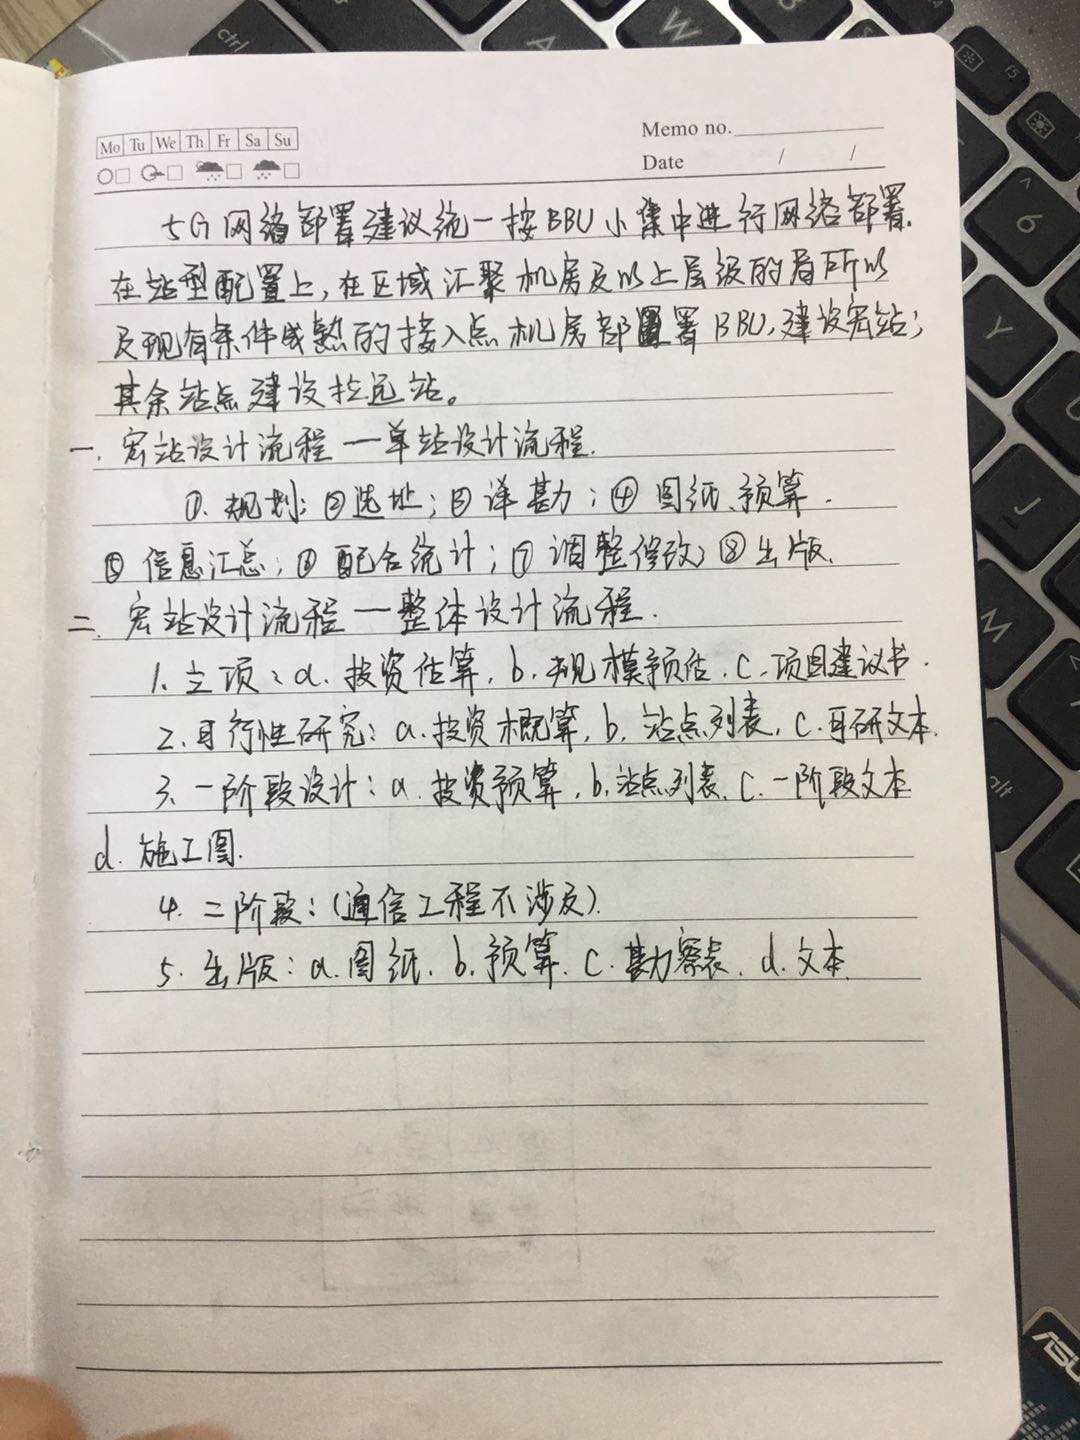 Mo Tu We Th Fr Sa Su
Memo no.
Date / /
5G网络部署建议统一按BBU小集中进行网络部署.
在站型配置上,在区域汇聚机房及以上层级的局所以
及现有条件成熟的接入点机房部署BBU,建设宏站;
其余站点建设拉远站。
一. 宏站设计流程—单站设计流程.
①.规划;②选址;③详勘;④图纸、预算.
⑤信息汇总;⑥配合统计;⑦调整修改;⑧出版.
二. 宏站设计流程—整体设计流程.
1.立项:a.投资估算,b.规模预估.c.项目建议书.
2.可行性研究:a.投资概算,b.站点列表,c.可研文本.
3.一阶段设计:a.投资预算,b.站点列表.c.一阶段文本
d.施工图.
4.二阶段:(通信工程不涉及).
5.出版:a.图纸.b.预算.c.勘察表.d.文本.
ctrl
A
W
3
f5
^
6
Y
U
J
M
alt
ASU